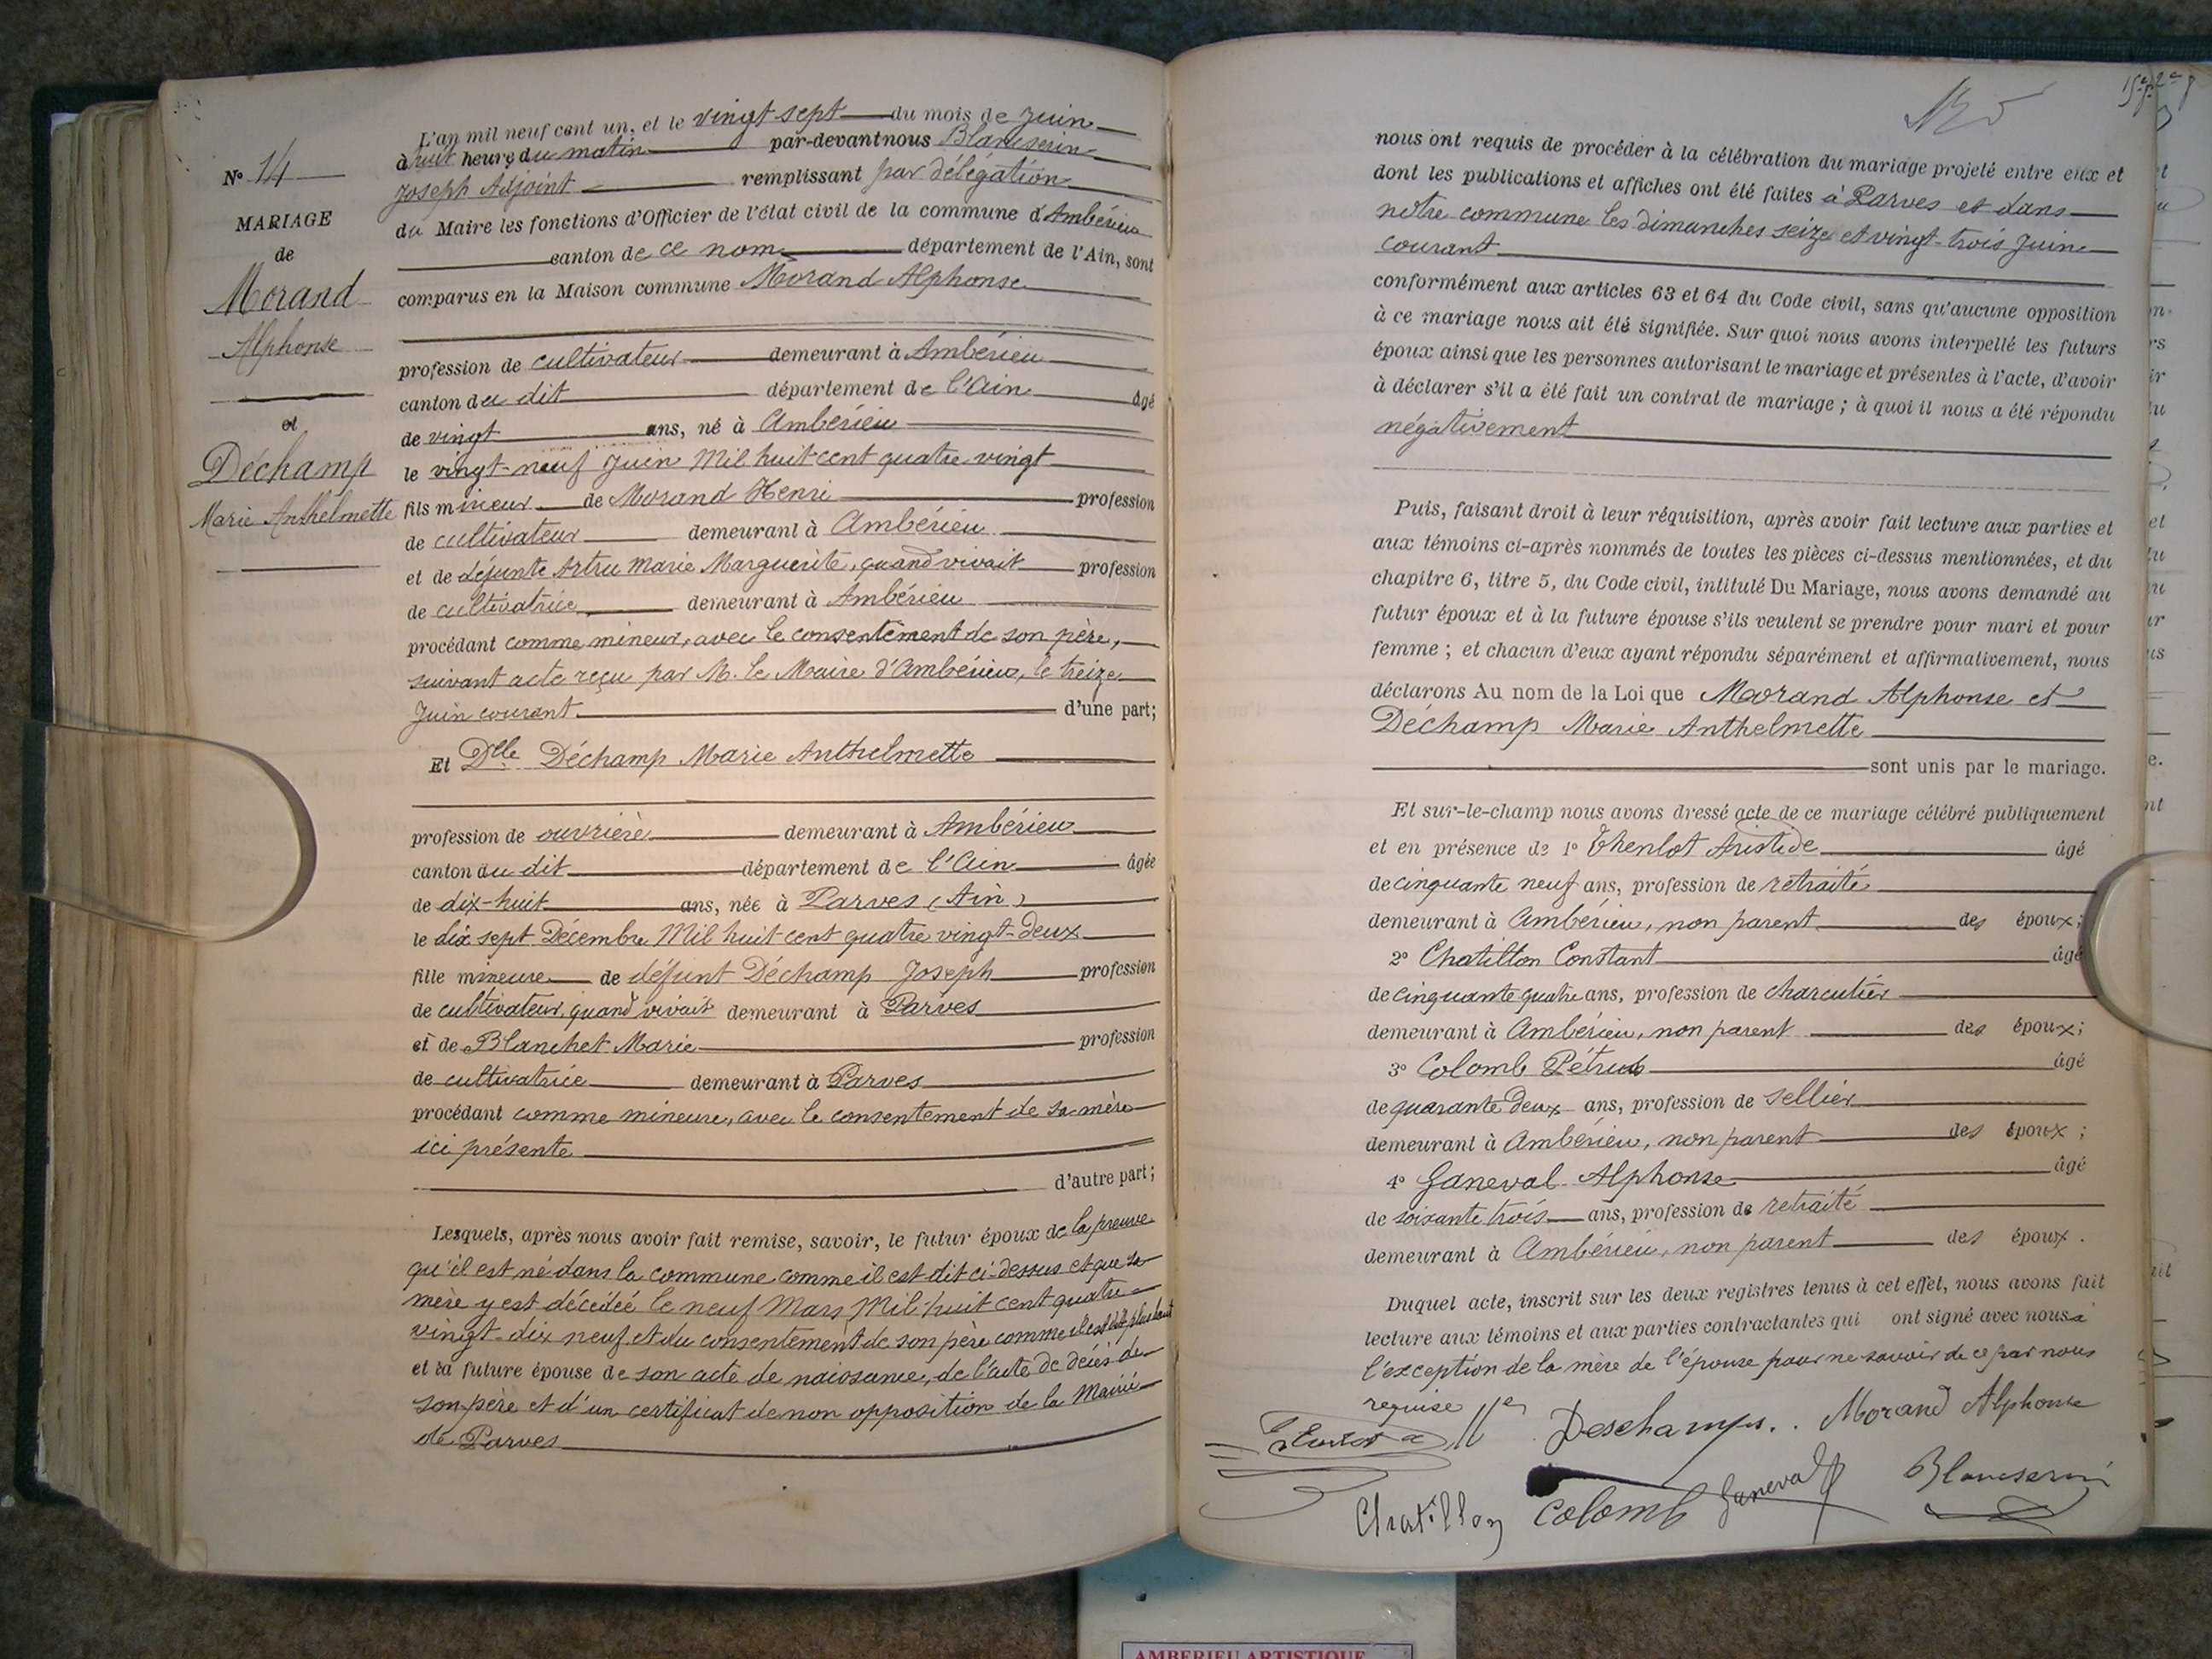 N° 14
MARIAGE
de
Morand
Alphonse
et
Déchamp
Marie Anthelmette
L'an mil neuf cent un, et le vingt sept du mois de Juin
à huit heures du matin par-devant nous Blancserin
Joseph Adjoint remplissant par délégation
du Maire les fonctions d'Officier de l'état civil de la commune d'Ambérieu
canton de ce nom département de l'Ain, sont
comparus en la Maison commune Morand Alphonse
profession de cultivateur demeurant à Ambérieu
canton du dit département de l'Ain âgé
de vingt ans, né à Ambérieu
le vingt-neuf Juin Mil huit cent quatre vingt
fils mineur de Morand Henri profession
de cultivateur demeurant à Ambérieu
et de défunte Artru Marie Marguerite, quand vivait profession
de cultivatrice demeurant à Ambérieu
procédant comme mineur, avec le consentement de son père,
suivant acte reçu par M. le Maire d'Ambérieu, le treize
Juin courant d'une part;
Et Dlle Déchamp Marie Anthelmette
profession de ouvrière demeurant à Ambérieu
canton du dit département de l'Ain âgée
de dix-huit ans, née à Parves (Ain)
le dix sept Décembre Mil huit cent quatre vingt-deux
fille mineure de défunt Déchamp Joseph profession
de cultivateur, quand vivait demeurant à Parves
et de Blanchet Marie profession
de cultivatrice demeurant à Parves
procédant comme mineure, avec le consentement de sa mère
ici présente
d'autre part;
Lesquels, après nous avoir fait remise, savoir, le futur époux de la preuve
qu'il est né dans la commune comme il est dit ci-dessus et que sa
mère y est décédée le neuf Mars Mil-huit cent quatre
vingt-dix neuf et du consentement de son père comme il est dit plus haut
et la future épouse de son acte de naissance, de l'acte de décès de
son père et d'un certificat de non opposition de la Mairie
de Parves
nous ont requis de procéder à la célébration du mariage projeté entre eux et
dont les publications et affiches ont été faites à Parves et dans
notre commune les dimanches seize et vingt-trois Juin
courant
conformément aux articles 63 et 64 du Code civil, sans qu'aucune opposition
à ce mariage nous ait été signifiée. Sur quoi nous avons interpellé les futurs
époux ainsi que les personnes autorisant le mariage et présentes à l'acte, d'avoir
à déclarer s'il a été fait un contrat de mariage ; à quoi il nous a été répondu
négativement
Puis, faisant droit à leur réquisition, après avoir fait lecture aux parties et
aux témoins ci-après nommés de toutes les pièces ci-dessus mentionnées, et du
chapitre 6, titre 5, du Code civil, intitulé Du Mariage, nous avons demandé au
futur époux et à la future épouse s'ils veulent se prendre pour mari et pour
femme ; et chacun d'eux ayant répondu séparément et affirmativement, nous
déclarons Au nom de la Loi que Morand Alphonse et
Déchamp Marie Anthelmette
sont unis par le mariage.
Et sur-le-champ nous avons dressé acte de ce mariage célébré publiquement
et en présence de 1° Thenlot Aristide âgé
de cinquante neuf ans, profession de retraité
demeurant à Ambérieu, non parent des époux;
2° Chatillon Constant âgé
de cinquante quatre ans, profession de charcutier
demeurant à Ambérieu, non parent des époux;
3° Colomb Pétrus âgé
de quarante deux ans, profession de sellier
demeurant à Ambérieu, non parent des époux ;
4° Ganeval Alphonse âgé
de soixante trois ans, profession de retraité
demeurant à Ambérieu, non parent des époux.
Duquel acte, inscrit sur les deux registres tenus à cet effet, nous avons fait
lecture aux témoins et aux parties contractantes qui ont signé avec nous à
l'exception de la mère de l'épouse pour ne savoir de ce par nous
requise
Mlle Deschamps.. Morand Alphonse
Chatillon Colomb Ganeval Blancserin
AMBERIEU ARTISTIQUE